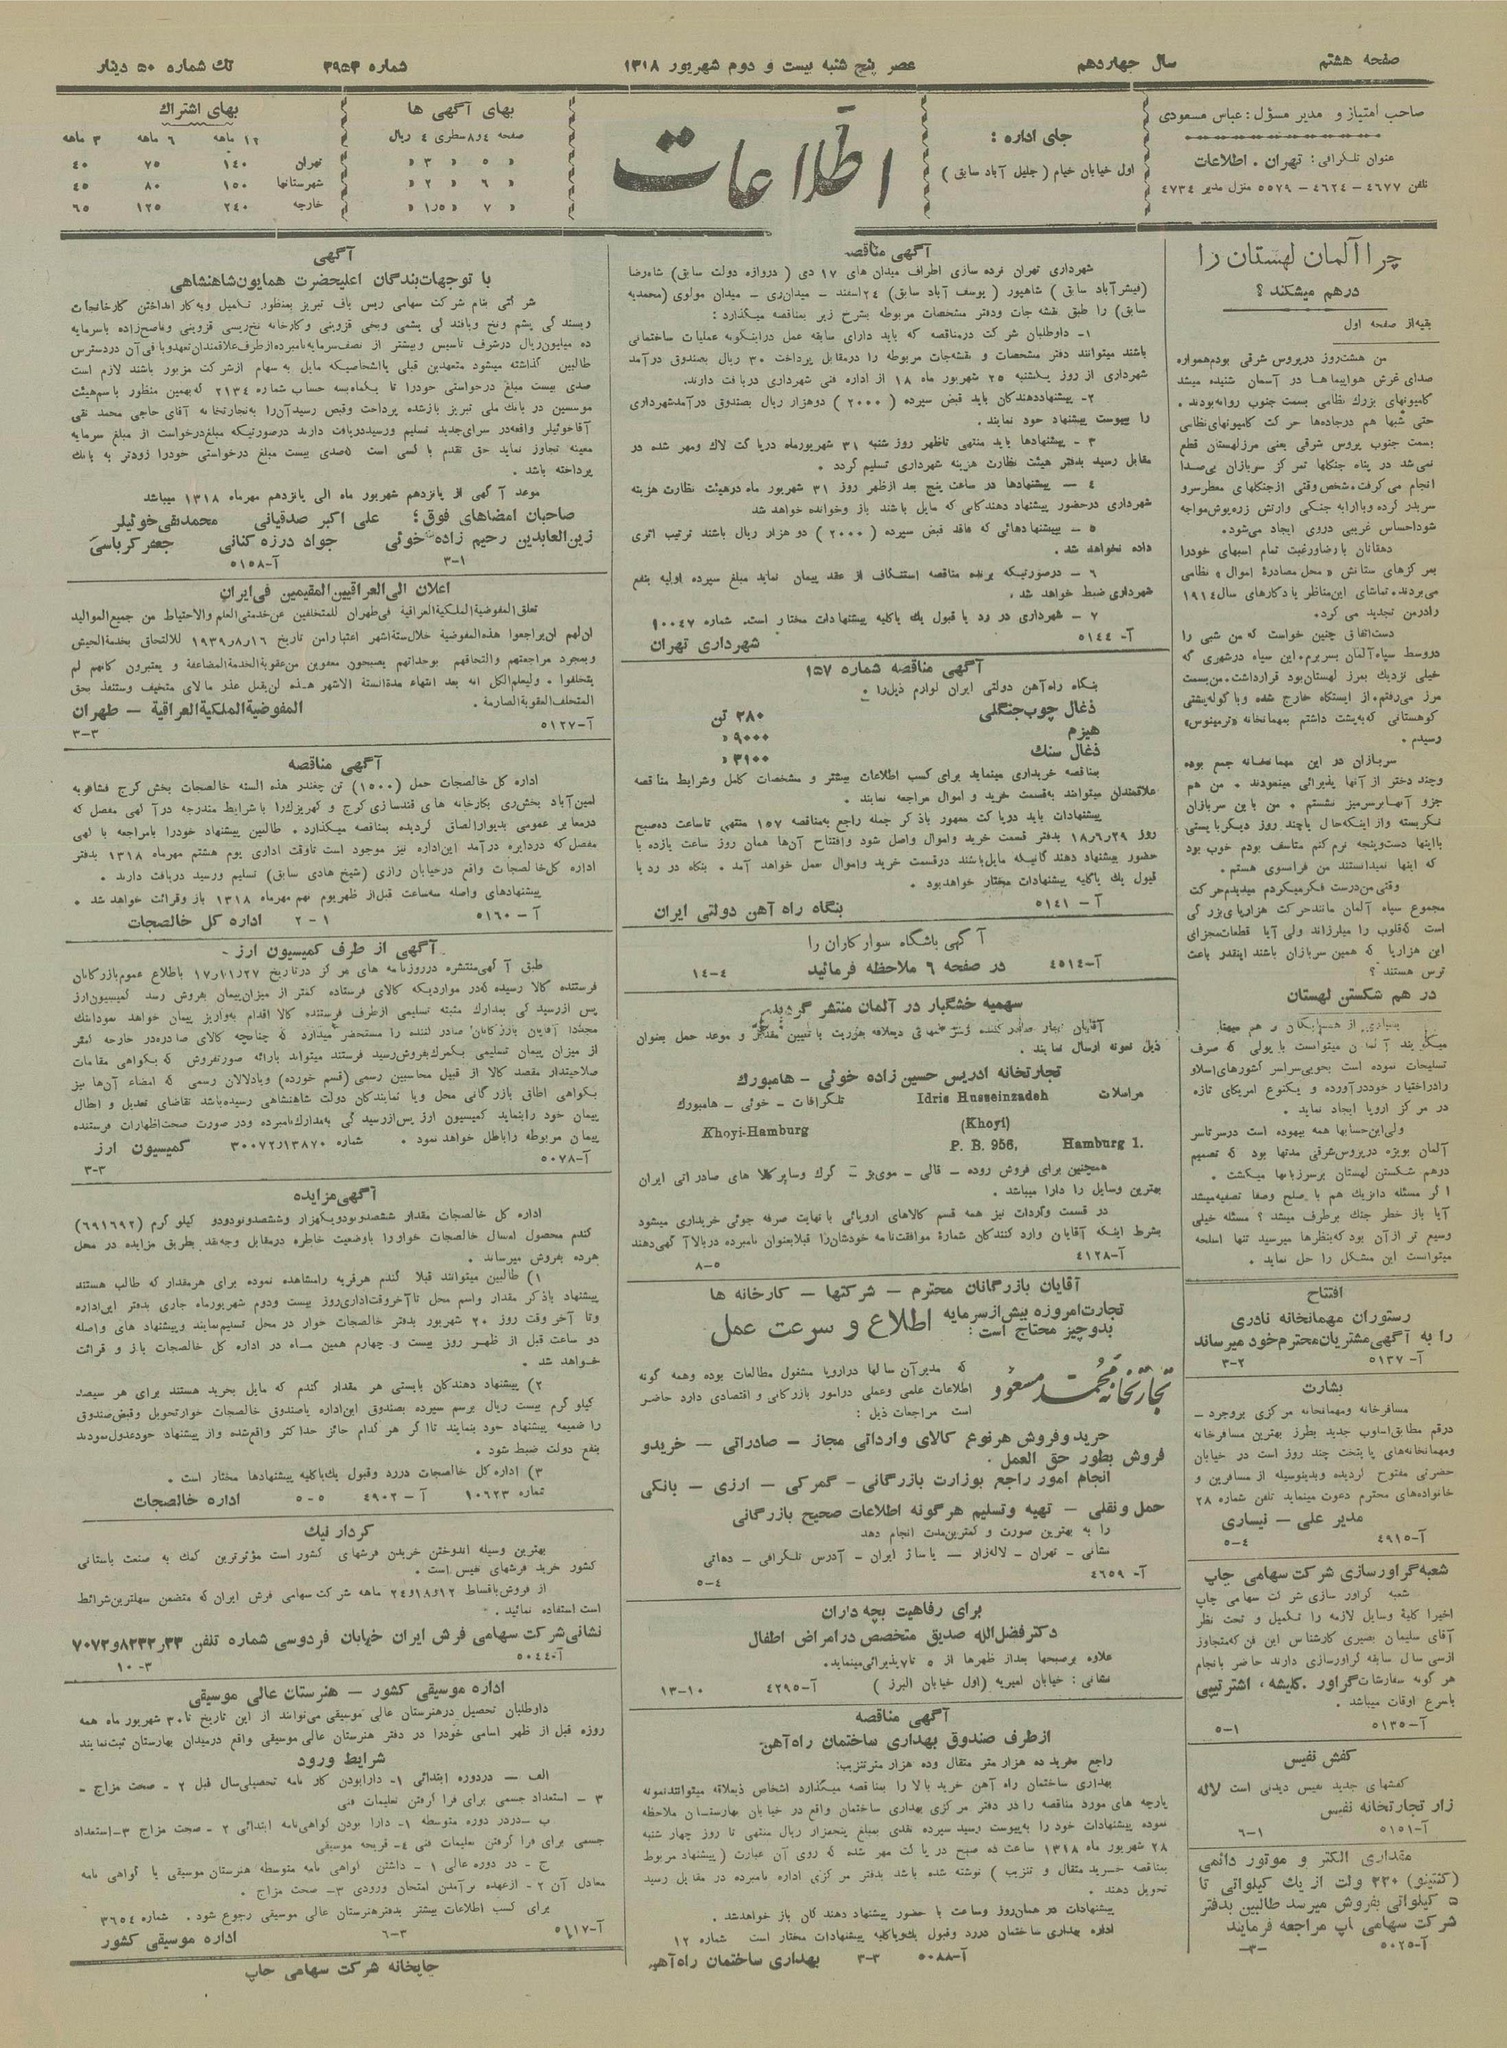 صفحه هشتم
سال چهاردهم
عصر پنج شنبه بیست و دوم شهریور ۱۳۱۸
شماره ۳۹۵۳
تك شماره ۵۰ دینار
صاحب امتیاز و مدیر مسؤل : عباس مسعودی
عنوان تلگرافی : تهران . اطلاعات
تلفن ۴۶۷۷ – ۴۶۲۴ – ۵۵۷۹ منزل مدیر ۴۷۳۴
جای اداره :
اول خیابان خیام ( جلیل آباد سابق )
اطلاعات
بهای آگهی ها
صفحه ۴و۸ سطری ۴ ریال
» ۵ » ۳ »
» ۶ » ۲ »
» ۷ » ۱ر۵ »
بهای اشتراك
۱۲ ماهه ۶ ماهه ۳ ماهه
تهران ۱۴۰ ۷۵ ۴۰
شهرستانها ۱۵۰ ۸۰ ۴۵
خارجه ۲۴۰ ۱۲۵ ۶۵
چرا آلمان لهستان را
درهم میشکند ؟
بقیه از صفحه اول
من هشت روز در پروس شرقی بودم همواره
صدای غرش هواپیماها در آسمان شنیده میشد
کامیونهای بزرك نظامی بسمت جنوب روانه بودند .
حتی شبها هم درجاده‌ها حرکت کامیونهای نظامی
بسمت جنوب پروس شرقی یعنی مرز لهستان قطع
نمی شد در پناه جنگلها تمرکز سربازان بی صدا
انجام می گرفت . شخص وقتی از جنگلهای معطر سرو
شود احساس غریبی در وی ایجاد می‌شود .
دهقانان با رضا و رغبت تمام اسبهای خود را
بمرکزهای ستانش « محل مصادرۀ اموال » نظامی
می بردند . تماشای این مناظر یادگارهای سال ۱۹۱۴
را در من تجدید می کرد .
دست اتفاق چنین خواست که من شبی را
در وسط سپاه آلمان بسر برم . این سپاه در شهری که
خیلی نزدیك بمرز لهستان بود قرار داشت . من بسمت
مرز می رفتم . از ایستگاه خارج شده و با کوله پشتی
کوهستانی که به پشت داشتم بمهمانخانه «ترمینوس»
رسیدم .
سربازان در این مهمانخانه جمع بوده
و چند دختر از آنها پذیرائی مینمودند . من هم
جزو آنها بر سر میز نشستم . من با این سربازان
نگریسته و از اینکه حال یا چند روز دیگر بایستی
با اینها دست و پنجه نرم کنم متاسف بودم خوب بود
که اینها نمیدانستند من فرانسوی هستم .
وقتی من درست فکر میکردم میدیدم حرکت
مجموع سپاه آلمان مانند حرکت هزارپای بزرگی
است که قلوب را میلرزاند ولی آیا قطعات مجزای
این هزارپا که همین سربازان باشند اینقدر باعث
ترس هستند ؟
در هم شکستن لهستان
تسلیحات نموده است بخوبی سراسر کشورهای اسلاو
را در اختیار خود در آورده و یکنوع امریکای تازه
در مرکز اروپا ایجاد نماید .
ولی این حسابها همه بیهوده است در سرتاسر
آلمان بویژه در پروس شرقی مدتها بود که تصمیم
درهم شکستن لهستان بر سر زبانها میگشت .
اگر مسئله دانزیك هم با صلح و صفا تصفیه میشد
آیا باز خطر جنك برطرف میشد ؟ مسئله خیلی
وسیع تر از آن بود که بنظرها میرسید تنها اسلحه
میتوانست این مشکل را حل نماید .
افتتاح
رستوران مهمانخانه نادری
را به آگهی مشتریان محترم خود میرساند
آ- ۵۱۳۷ ۲-۳
بشارت
مسافرخانه و مهمانخانه مرکزی بروجرد –
درقم مطابق اسلوب جدید بطرز بهترین مسافرخانه
و مهمانخانه‌های پایتخت چند روز است در خیابان
حضرتی مفتوح گردیده و بدینوسیله از مسافرین و
خانواده‌های محترم دعوت مینماید تلفن شماره ۲۸
مدیر علی – نیساری
آ-۴۹۱۵ ۴-۵
شعبه گراور سازی شرکت سهامی چاپ
شعبه گراور سازی شرکت سهامی چاپ
اخیرا کلیۀ وسایل لازمه را تکمیل و تحت نظر
آقای سلیمان بصیری کارشناس این فن که متجاوز
از سی سال سابقه گراورسازی دارند حاضر بانجام
هر گونه سفارشات گراور . کلیشه ، اشتریپی
باسرع اوقات میباشد .
آ-۵۱۳۵ ۱-۵
کفش نفیس
کفشهای جدید نفیس دیدنی است لاله
زار تجارتخانه نفیس
آ-۵۱۵۱ ۱-۶
مقداری الکتر و موتور دائمی
(کنتینو) ۲۲۰ ولت از یك کیلواتی تا
۵ کیلواتی بفروش میرسد طالبین بدفتر
شرکت سهامی اپ مراجعه فرمایند
آ-۵۰۲۵ -۳-
آگهی مناقصه
شهرداری تهران نرده سازی اطراف میدان های ۱۷ دی ( دروازه دولت سابق) شاهرضا
(فیشرآباد سابق ) شاهپور ( یوسف آباد سابق) ۲۴ اسفند – میدان ری – میدان مولوی (محمدیه
سابق) را طبق نقشه جات و دفتر مشخصات مربوطه بشرح زیر بمناقصه میگذارد :
۱- داوطلبان شرکت در مناقصه که باید دارای سابقه عمل در اینگونه عملیات ساختمانی
باشند میتوانند دفتر مشخصات و نقشه‌جات مربوطه را در مقابل پرداخت ۳۰ ریال بصندوق درآمد
شهرداری از روز یکشنبه ۲۵ شهریور ماه ۱۸ از اداره فنی شهرداری دریافت دارند .
۲- پیشنهاد دهندگان باید قبض سپرده ( ۲۰۰۰ ) دوهزار ریال بصندوق درآمد شهرداری
را پیوست پیشنهاد خود نمایند .
۳ – پیشنهادها باید منتهی تا ظهر روز شنبه ۳۱ شهریورماه در پاکت لاك و مهر شده در
مقابل رسید بدفتر هیئت نظارت هزینه شهرداری تسلیم گردد .
۴ – پیشنهادها در ساعت پنج بعد از ظهر روز ۳۱ شهریور ماه در هیئت نظارت هزینه
شهرداری در حضور پیشنهاد دهندگانی که مایل باشند باز و خوانده خواهد شد
۵ – پیشنهادهائی که فاقد قبض سپرده ( ۲۰۰۰ ) دو هزار ریال باشند ترتیب اثری
داده نخواهد شد .
۶ – درصورتیکه برنده مناقصه استنکاف از عقد پیمان نماید مبلغ سپرده اولیه بنفع
شهرداری ضبط خواهد شد .
۷ – شهرداری در رد یا قبول یك یا کلیه پیشنهادات مختار است . شماره ۱۰۰۴۷
آ- ۵۱۴۴ شهرداری تهران
آگهی مناقصه شماره ۱۵۷
بنگاه راه آهن دولتی ایران لوازم ذیل را :
ذغال چوب جنگلی ۲۸۰ تن
هیزم ۹۰۰۰ »
ذغال سنك ۳۱۰۰ »
بمناقصه خریداری مینماید برای کسب اطلاعات بیشتر و مشخصات کامل و شرایط مناقصه
علاقمندان میتوانند به قسمت خرید و اموال مراجعه نمایند .
پیشنهادات باید در پاکت ممهور با ذکر جمله راجع به مناقصه ۱۵۷ منتهی تا ساعت ده صبح
روز ۲۹ر۶ر۱۸ بدفتر قسمت خرید و اموال واصل شود و افتتاح آن‌ها همان روز ساعت یازده با
حضور پیشنهاد دهندگانیکه مایل باشند در قسمت خرید و اموال عمل خواهد آمد . بنگاه در رد یا
قبول یك یا کلیه پیشنهادات مختار خواهد بود .
آ – ۵۱۴۱ بنگاه راه آهن دولتی ایران
آگهی باشگاه سوارکاران را
در صفحه ۶ ملاحظه فرمائید
آ-۴۵۱۴ ۴-۱۴
سهمیه خشگبار در آلمان منتشر گردید
ذیل نمونه ارسال نمایند .
تجارتخانه ادریس حسین زاده خوئی – هامبورك
مراسلات Idris Husseinzadeh تلگرافات – خوئی – هامبورك
(Khoyi) Khoyi-Hamburg
P. B. 956, Hamburg 1.
همچنین برای فروش روده – قالی – موی بز – کرك و سایر کالا های صادراتی ایران
بهترین وسایل را دارا میباشد .
در قسمت واردات نیز همه قسم کالاهای اروپائی با نهایت صرفه جوئی خریداری میشود
بشرط اینکه آقایان وارد کنندگان شمارۀ موافقت نامه خودشان را قبلا بعنوان نامبرده در بالا آگهی دهند
آ-۴۱۲۸ ۵-۸
آقایان بازرگانان محترم – شرکتها – کارخانه ها
تجارت امروزه بیش از سرمایه
بدو چیز محتاج است : اطلاع و سرعت عمل
تجارتخانه محمد مسعود
که مدیر آن سالها در اروپا مشغول مطالعات بوده و همه گونه
اطلاعات علمی و عملی در امور بازرگانی و اقتصادی دارد حاضر
است مراجعات ذیل :
خرید و فروش هر نوع کالای وارداتی مجاز – صادراتی – خرید و
فروش بطور حق العمل .
انجام امور راجع بوزارت بازرگانی – گمرکی – ارزی – بانکی
حمل و نقلی – تهیه و تسلیم هر گونه اطلاعات صحیح بازرگانی
را به بهترین صورت و کمترین مدت انجام دهد
نشانی – تهران – لاله‌زار – پاساژ ایران – آدرس تلگرافی – دهاتی
آ- ۴۶۵۹ ۴-۵
برای رفاهیت بچه داران
دکتر فضل‌الله صدیق متخصص در امراض اطفال
علاوه بر صبحها بعد از ظهرها از ۵ تا ۷ پذیرائی مینماید .
نشانی : خیابان امیریه (اول خیابان البرز ) آ-۴۲۹۵ ۱۰-۱۳
آگهی مناقصه
از طرف صندوق بهداری ساختمان راه آهن
راجع بخرید ده هزار متر متقال و ده هزار متر تنزیب :
بهداری ساختمان راه آهن خرید بالا را بمناقصه میگذارد اشخاص ذیعلاقه میتوانند نمونه
پارچه های مورد مناقصه را در دفتر مرکزی بهداری ساختمان واقع در خیابان بهارستان ملاحظه
نموده پیشنهادات خود را به پیوست رسید سپرده نقدی بمبلغ پنجهزار ریال منتهی تا روز چهار شنبه
۲۸ شهریور ماه ۱۳۱۸ ساعت ده صبح در پاکت مهر شده که روی آن عبارت (پیشنهاد مربوط
بمناقصه خرید متقال و تنزیب ) نوشته شده باشد بدفتر مرکزی اداره نامبرده در مقابل رسید
تحویل دهند .
پیشنهادات در همان روز و ساعت با حضور پیشنهاد دهندگان باز خواهد شد .
اداره بهداری ساختمان در رد و قبول یك و یا کلیه پیشنهادات مختار است شماره ۱۲
آ-۵۰۸۸ ۳-۳ بهداری ساختمان راه آهن
آگهی
با توجهات بندگان اعلیحضرت همایون شاهنشاهی
شرکتی بنام شرکت سهامی ریس باف تبریز بمنظور تکمیل و بکار انداختن کارخانجات
ریسندگی پشم و نخ و بافندگی پشمی و نخی قزوینی و کارخانه نخ‌ریسی قزوینی و ناصح زاده با سرمایه
ده میلیون ریال در شرف تاسیس و بیشتر از نصف سرمایه نامبرده از طرف علاقمندان تعهد و باقی آن در دسترس
طالبین گذاشته میشود متعهدین قبلی یا اشخاصیکه مایل به سهام از شرکت مزبور باشند لازم است
صدی بیست مبلغ درخواستی خود را تا یکماه به حساب شماره ۲۱۳۴ که بهمین منظور باسم هیئت
موسسین در بانك ملی تبریز باز شده پرداخت و قبض رسید آن را به تجارتخانه آقای حاجی محمد نقی
آقا خوئیلر واقعه در سرای جدید تسلیم و رسید دریافت دارند درصورتیکه مبلغ درخواست از مبلغ سرمایه
معینه تجاوز نماید حق تقدم با کسی است که صدی بیست مبلغ درخواستی خود را زودتر به بانك
پرداخته باشد .
موعد آگهی از پانزدهم شهریور ماه الی پانزدهم مهرماه ۱۳۱۸ میباشد
صاحبان امضاهای فوق : علی اکبر صدقیانی محمدنقی خوئیلر
زین العابدین رحیم زاده خوئی جواد درزه کنانی جعفر کرباسی
۱-۳ آ-۵۱۵۸
اعلان الی العراقیین المقیمین فی ایران
تعلق المفوضیة الملکیة العراقیة فی طهران للمتخلفین عن خدمتی العلم والاحتیاط من جمیع الموالید
ان لهم ان یراجعوا هذه المفوضیة خلال ستة اشهر اعتبارا من تاریخ ۱۶ر۸ر۱۹۳۹ للالتحاق بخدمة الجیش
وبمجرد مراجعتهم والتحاقهم بوحداتهم یصبحون معفوین من عقوبة الخدمة المضاعفة و یعتبرون کانهم لم
یتخلفوا . ولیعلم الکل انه بعد انتهاء مدة الستة الاشهر هذه لن یقبل عذر مالای متخیف وستنفذ بحق
المتخلف العقوبة الصارمة . المفوضیة الملکیة العراقیة – طهران
آ-۵۱۲۷ ۳-۳
آگهی مناقصه
اداره کل خالصجات حمل (۱۵۰۰) تن چغندر هذه السنه خالصجات بخش کرج فشافویه
امین آباد بخش ری بکارخانه های قندسازی کرج و کهریزك را با شرایط مندرجه در آگهی مفصل که
در معابر عمومی بدیوار الصاق گردیده بمناقصه میگذارد . طالبین پیشنهاد خود را بمراجعه با آگهی
مفصل که در دایره درآمد این اداره نیز موجود است تا وقت اداری یوم هشتم مهرماه ۱۳۱۸ بدفتر
اداره کل خالصجات واقع در خیابان رازی (شیخ هادی سابق) تسلیم و رسید دریافت دارند .
پیشنهادهای واصله سه ساعت قبل از ظهر یوم نهم مهرماه ۱۳۱۸ باز و قرائت خواهد شد .
آ – ۵۱۶۰ ۱ – ۲ اداره کل خالصجات
آگهی از طرف کمیسیون ارز
طبق آگهی منتشره در روزنامه های مرکز در تاریخ ۲۷ر۱۱ر۱۷ باطلاع عموم بازرگانان
فرستنده کالا رسیده که در مواردیکه کالای فرستاده کمتر از میزان پیمان بفروش رسد کمیسیون ارز
پس از رسیدگی بمدارك مثبته تسلیمی از طرف فرستنده کالا اقدام به واریز پیمان خواهد نمود اینك
مجددا آقایان بازرگانان صادر کننده را مستحضر میدارد که چنانچه کالای صادره در خارجه کمتر
از میزان پیمان تسلیمی بگمرك بفروش رسید فرستنده میتواند با ارائه صورت فروش که بگواهی مقامات
صلاحیتدار مقصد کالا از قبیل محاسبین رسمی (قسم خورده) و یا دلالان رسمی که امضاء آن‌ها نیز
بگواهی اطاق بازرگانی محل و یا نمایندگان دولت شاهنشاهی رسیده باشد تقاضای تعدیل و ابطال
پیمان خود را بنماید کمیسیون ارز پس از رسیدگی به مدارك نامبرده و در صورت صحت اظهارات فرستنده
پیمان مربوطه را باطل خواهد نمود . شماره ۳۰۰۷۲ر۱۳۸۷۰ کمیسیون ارز
آ-۵۰۷۸ ۳-۳
آگهی مزایده
اداره کل خالصجات مقدار ششصد و نود و یکهزار و ششصد و نود و دو کیلو گرم (۶۹۱۶۹۲)
گندم محصول امسال خالصجات خوار را با وضعیت خاطره در مقابل وجه نقد بطریق مزایده در محل
خرده بفروش میرساند .
۱) طالبین میتوانند قبلا گندم هر قریه را مشاهده نموده برای هر مقدار که طالب هستند
پیشنهاد با ذکر مقدار و اسم محل تا آخر وقت اداری روز بیست و دوم شهریورماه جاری بدفتر این اداره
و تا آخر وقت روز ۲۰ شهریور بدفتر خالصجات خوار در محل تسلیم نمایند و پیشنهاد های واصله
دو ساعت قبل از ظهر روز بیست و چهارم همین ماه در اداره کل خالصجات باز و قرائت
خواهد شد .
۲) پیشنهاد دهندگان بایستی هر مقدار گندم که مایل بخرید هستند برای هر سیصد
کیلو گرم بیست ریال برسم سپرده بصندوق این اداره یا صندوق خالصجات خوار تحویل و قبض صندوق
را ضمیمه پیشنهاد خود بنمایند تا اگر هر کدام حائز حداکثر واقع شده و از پیشنهاد خود عدول نمودند
بنفع دولت ضبط شود .
۳) اداره کل خالصجات در رد و قبول یك یا کلیه پیشنهادها مختار است .
شماره ۱۰۶۲۳ آ – ۴۹۰۲ ۵-۵ اداره خالصجات
کردار نیك
بهترین وسیله اندوختن خریدن فرشهای کشور است مؤثرترین کمك به صنعت باستانی
کشور خرید فرشهای نفیس است .
از فروش باقساط ۱۲و۱۸و۲۴ ماهه شرکت سهامی فرش ایران که متضمن سهلترین شرائط
است استفاده نمائید .
نشانی شرکت سهامی فرش ایران خیابان فردوسی شماره تلفن ۳۳ر۸۲۳۲و۷۰۷۲
آ-۵۰۴۴ ۳-۱۰
اداره موسیقی کشور – هنرستان عالی موسیقی
داوطلبان تحصیل در هنرستان عالی موسیقی می‌توانند از این تاریخ تا ۳۰ شهریور ماه همه
روزه قبل از ظهر اسامی خود را در دفتر هنرستان عالی موسیقی واقع در میدان بهارستان ثبت نمایند
شرایط ورود
الف – در دوره ابتدائی ۱- دارا بودن کارنامه تحصیلی سال قبل ۲ – صحت مزاج –
۳ – استعداد جسمی برای فرا گرفتن تعلیمات فنی
ب – در دوره متوسطه ۱- دارا بودن گواهی‌نامه ابتدائی ۲ – صحت مزاج ۳- استعداد
جسمی برای فرا گرفتن تعلیمات فنی ۴- قریحه موسیقی
ج – در دوره عالی ۱ – داشتن گواهی نامه متوسطه هنرستان موسیقی یا گواهی نامه
معادل آن ۲- از عهده برآمدن امتحان ورودی ۳- صحت مزاج .
برای کسب اطلاعات بیشتر بدفتر هنرستان عالی موسیقی رجوع شود . شماره ۳۶۵۴
آ-۵۱۱۷ ۳-۶ اداره موسیقی کشور
چاپخانه شرکت سهامی چاپ